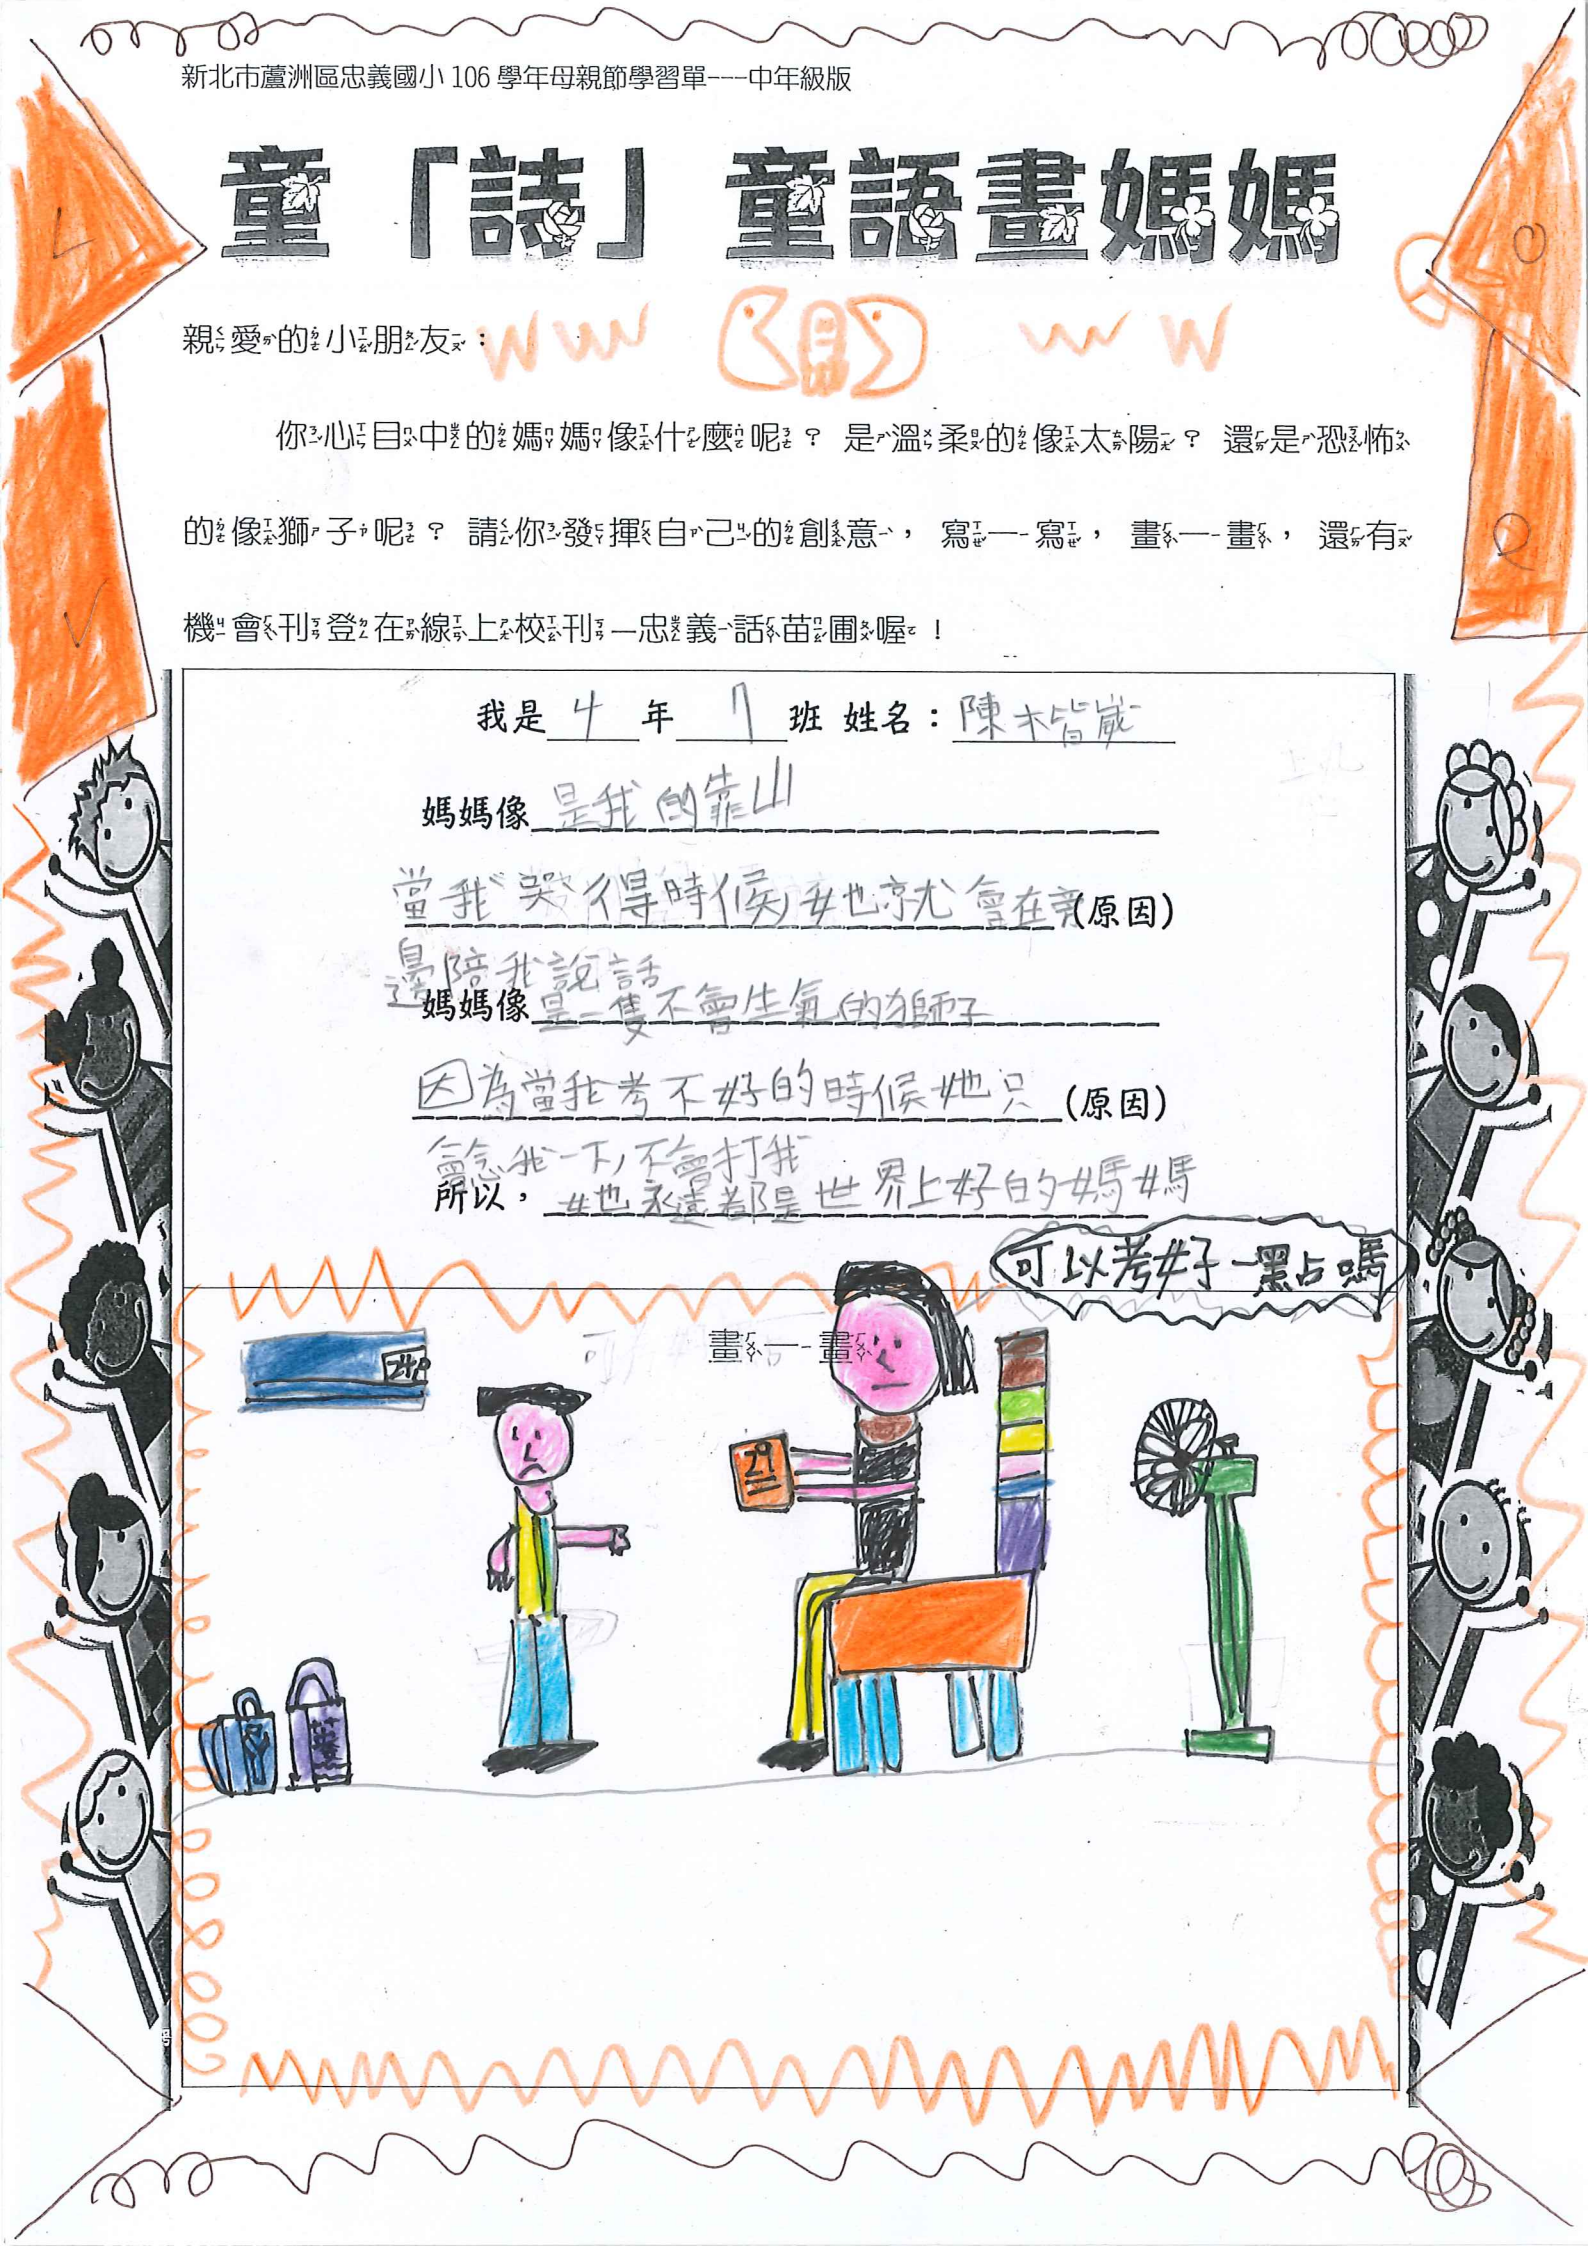 新北市蘆洲區忠義國小 106 學年母親節學習單---中年級版
童「詩」童語畫媽媽
親愛的小朋友：
你心目中的媽媽像什麼呢？是溫柔的像太陽？還是恐怖
的像獅子呢？請你發揮自己的創意，寫一寫，畫一畫，還有
機會刊登在線上校刊—忠義話苗圃喔！
我是 4 年 7 班 姓名：陳楷崴
媽媽像是我的靠山
當我哭得時候，她就會在旁(原因)
邊陪我說話
媽媽像是一隻不會生氣的獅子
因為當我考不好的時候她只(原因)
會念我一下，不會打我
所以，她永遠都是世界上好的媽媽
可以考好一點嗎
畫一畫
24°
29
英
LOVE